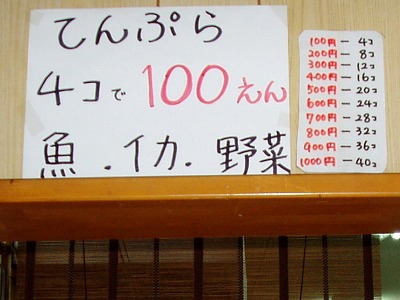 てんぷら
4コで 100えん
魚.イカ.野菜
100円 — 4コ
200円 — 8コ
300円 — 12コ
400円 — 16コ
500円 — 20コ
600円 — 24コ
700円 — 28コ
800円 — 32コ
900円 — 36コ
1000円 — 40コ